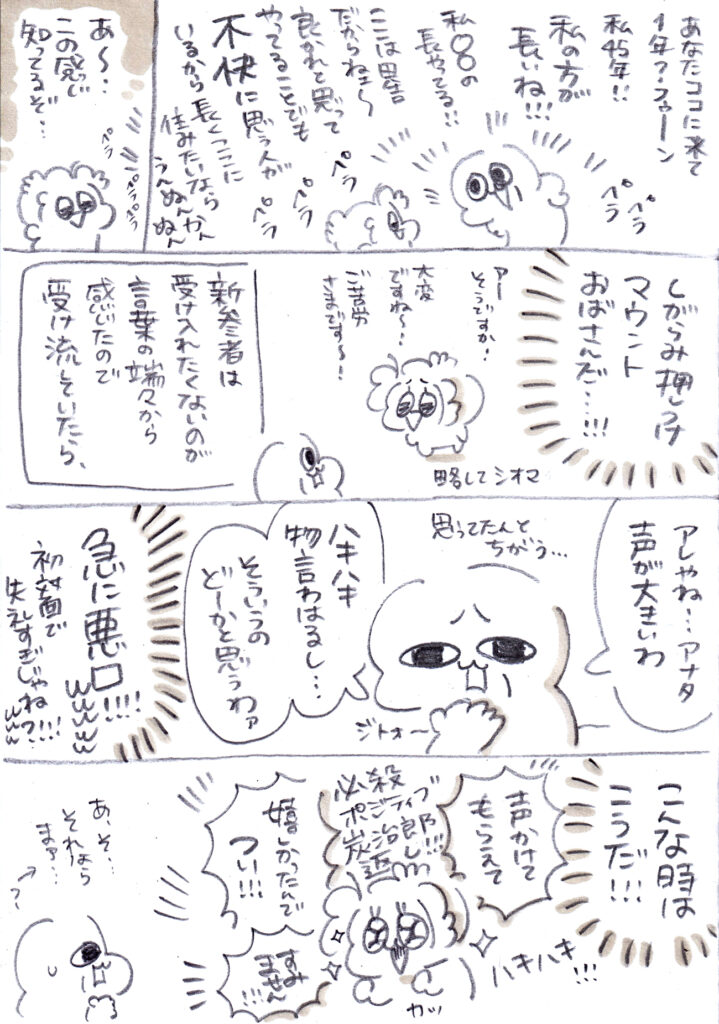 あなたココに来て
1年？フゥーン
私45年!!
私の方が
長いね!!!
私〇〇の
長やてる!!
ここは田舎
だからねぇ〜
良かれと思って
やってることでも
不快に思う人が
いるから長くここに
住みたいなら
うんぬんかん
ぬん
ペラ
ペラ
ペラ
ペラ
ペラ
あ〜…
この感じ
知ってるぞ…
ペラ
ペラペラ
しがらみ押しつけ
マウント
おばさんだ…!!!
略してシオマ
アー
そうですか!
大変
ですね〜!
ご苦労
さまです〜!
新参者は
受け入れたくないのが
言葉の端々から
感じたので
受け流していたら、
アレやね…アナタ
声が大きいわ
思ってたんと
ちがう…
ジトォ〜
ハキハキ
物言わはるし…
そういうの
どーかと思うわァ
急に悪口!!!!
初対面で
失礼すぎじゃね?!!!
wwww
www
こんな時は
こうだ!!!
声かけて
もらえて
必殺
ポジティブ
炭治郎
返し!!!
嬉しかったんで
つい!!!
すみ
ません
!!!
ハキハキ
!!!
カッ
あ、そ…
それなら
まァ…
→?